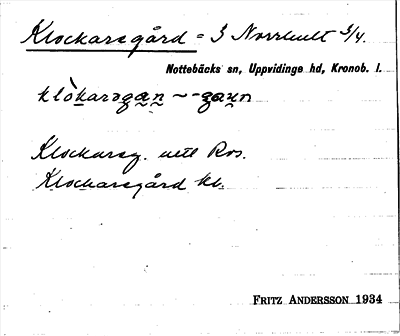 Klockaregård = 3 Norrhult 3/4.
Nottebäcks sn, Uppvidinge hd, Kronob. l.
klòkarəgan ~ -gaun
Klockareg. utl Ros.
Klockaregård kb.
FRITZ ANDERSSON 1934